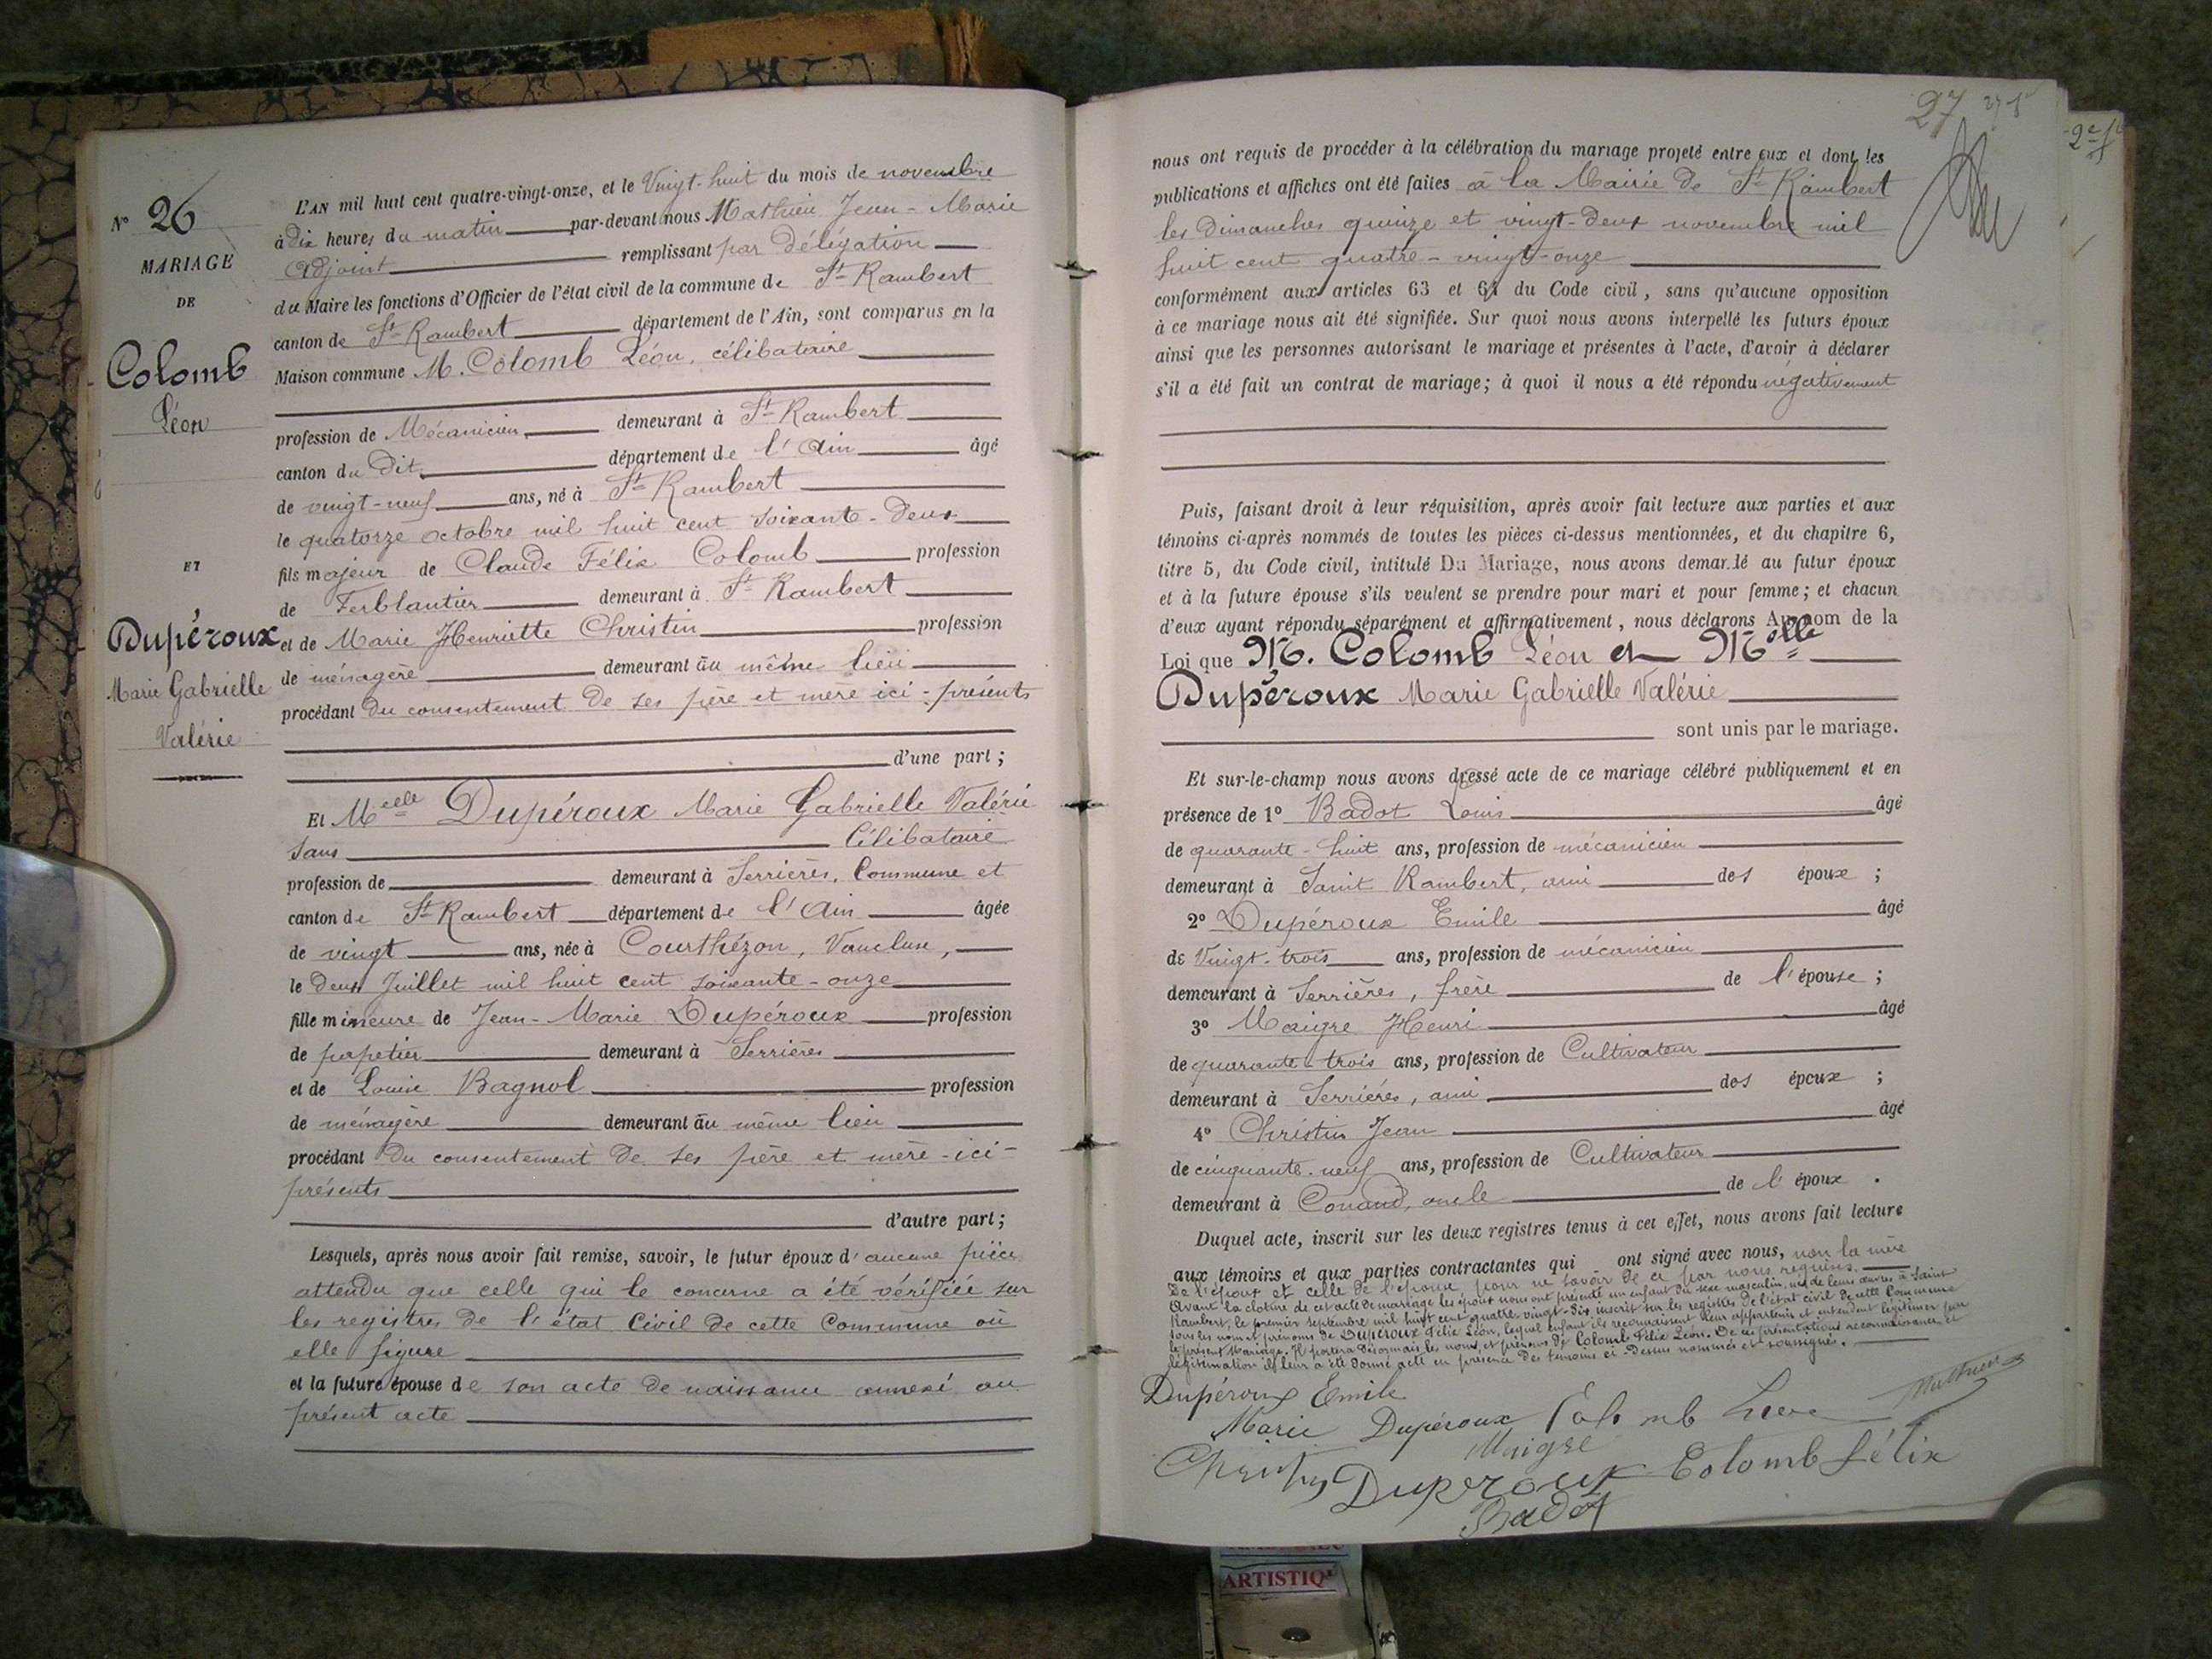 N° 26
MARIAGE
DE
Colomb
Léon
ET
Dupéroux
Marie Gabrielle
Valérie
L'AN mil huit cent quatre-vingt-onze, et le Vingt-huit du mois de novembre
à dix heures du matin par-devant nous Mathieu Jean-Marie
adjoint remplissant par délégation
du Maire les fonctions d'Officier de l'état civil de la commune de St-Rambert
canton de St-Rambert département de l'Ain, sont comparus en la
Maison commune M. Colomb Léon, célibataire
profession de Mécanicien demeurant à St-Rambert
canton du dit département de l'Ain âgé
de vingt-neuf ans, né à St-Rambert
le quatorze octobre mil huit cent soixante-deux
fils majeur de Claude Félix Colomb profession
de Ferblantier demeurant à St-Rambert
et de Marie Henriette Christin profession
de ménagère demeurant au même lieu
procédant du consentement de ses père et mère ici-présents
d'une part;
Et Melle Dupéroux Marie Gabrielle Valérie
sans Célibataire
profession de demeurant à Serrières, Commune et
canton de St-Rambert département de l'Ain âgée
de vingt ans, née à Courthézon, Vaucluse,
le deux Juillet mil huit cent soixante-onze
fille mineure de Jean-Marie Dupéroux profession
de papetier demeurant à Serrières
et de Louise Bagnol profession
de ménagère demeurant au même lieu
procédant du consentement de ses père et mère-ici-
présents
d'autre part;
Lesquels, après nous avoir fait remise, savoir, le futur époux d'aucune pièce
attendu que celle qui le concerne a été vérifiée sur
les registres de l'état Civil de cette Commune où
elle figure
et la future épouse de son acte de naissance annexé au
présent acte
27 27 f
2e f
nous ont requis de procéder à la célébration du mariage projeté entre eux et dont les
publications et affiches ont été faites à la Mairie de St-Rambert
les dimanches quinze et vingt-deux novembre mil
huit cent quatre-vingt-onze
conformément aux articles 63 et 64 du Code civil, sans qu'aucune opposition
à ce mariage nous ait été signifiée. Sur quoi nous avons interpellé les futurs époux
ainsi que les personnes autorisant le mariage et présentes à l'acte, d'avoir à déclarer
s'il a été fait un contrat de mariage; à quoi il nous a été répondu négativement
Puis, faisant droit à leur réquisition, après avoir fait lecture aux parties et aux
témoins ci-après nommés de toutes les pièces ci-dessus mentionnées, et du chapitre 6,
titre 5, du Code civil, intitulé Du Mariage, nous avons demandé au futur époux
et à la future épouse s'ils veulent se prendre pour mari et pour femme; et chacun
d'eux ayant répondu séparément et affirmativement, nous déclarons Au nom de la
Loi que M. Colomb Léon et Melle
Dupéroux Marie Gabrielle Valérie
sont unis par le mariage.
Et sur-le-champ nous avons dressé acte de ce mariage célébré publiquement et en
présence de 1° Badot Louis âgé
de quarante-huit ans, profession de mécanicien
demeurant à Saint Rambert, ami des époux;
2° Dupéroux Emile âgé
de Vingt-trois ans, profession de mécanicien
demeurant à Serrières, frère de l'épouse;
3° Maigre Henri âgé
de quarante-trois ans, profession de Cultivateur
demeurant à Serrières, ami des époux;
4° Christin Jean âgé
de cinquante-neuf ans, profession de Cultivateur
demeurant à Conand, oncle de l'époux.
Duquel acte, inscrit sur les deux registres tenus à cet effet, nous avons fait lecture
aux témoins et aux parties contractantes qui ont signé avec nous, non la mère
de l'époux et celle de l'épouse pour ne savoir de ce par nous requises.
Avant la clôture de cet acte de mariage les époux nous ont présenté un enfant du sexe masculin, né de leurs œuvres à Saint
Rambert, le premier septembre mil huit cent quatre-vingt-dix, inscrit sur les registres de l'état civil de cette Commune
sous les nom et prénoms de Dupéroux Félix Léon, lequel enfant ils reconnaissent leur appartenir et entendent légitimer par
le présent Mariage. Il portera désormais les nom et prénoms de Colomb Félix Léon. De ces présentations reconnaissance et
légitimation il leur a été donné acte en présence des témoins ci-dessus nommés et soussignés.
Dupéroux Emile
Marie Dupéroux Colomb Léon Mathieu
Maigre
Christin Dupéroux Colomb Félix
Badot
ARTISTIQ